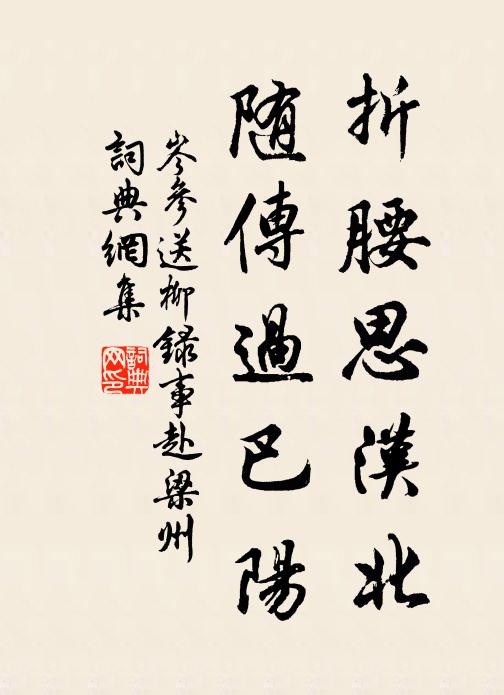 折腰思漢北
随傳過巴陽
岑參送柳録事赴梁州
詞典網集
詞典网印